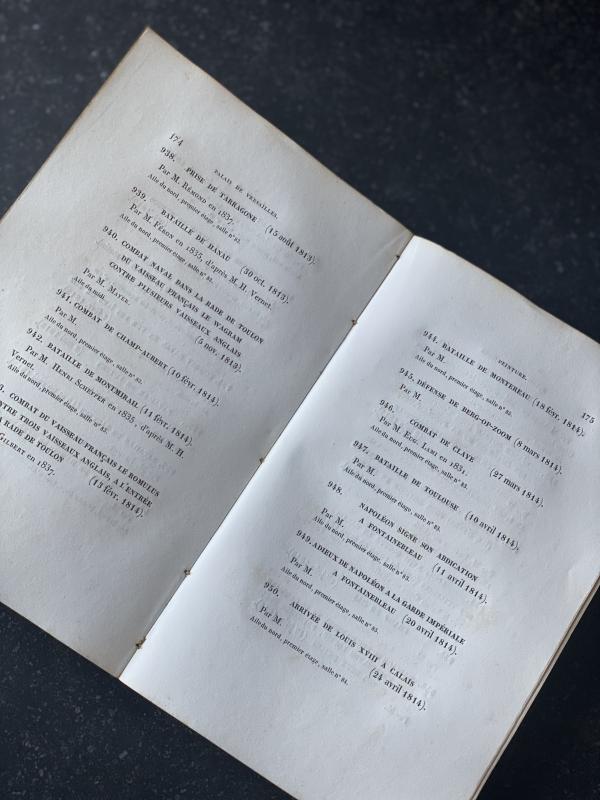 174
PALAIS DE VERSAILLES.
938. PRISE DE TARRAGONE (15 août 1813).
Par M. RÉMOND en 1837.
Aile du nord, premier étage, salle n° 83.
939. BATAILLE DE HANAU (30 oct. 1813).
Par M. FÉRON en 1835, d'après M. H. Vernet.
Aile du nord, premier étage, salle n° 83.
940. COMBAT NAVAL DANS LA RADE DE TOULON
DU VAISSEAU FRANÇAIS LE WAGRAM
CONTRE PLUSIEURS VAISSEAUX ANGLAIS
(5 nov. 1813).
Par M. MAYER.
Aile du midi.
941. COMBAT DE CHAMP-AUBERT (10 févr. 1814).
Par M.
Aile du nord, premier étage, salle n° 83.
942. BATAILLE DE MONTMIRAIL (11 févr. 1814).
Par M. HENRI SCHEFFER en 1835, d'après M. H.
Vernet.
Aile du nord, premier étage, salle n° 83.
3. COMBAT DU VAISSEAU FRANÇAIS LE ROMULUS
NTRE TROIS VAISSEAUX ANGLAIS, A L'ENTRÉE
A RADE DE TOULON (13 févr. 1814).
GILBERT en 1837.
PEINTURE.
175
944. BATAILLE DE MONTEREAU (18 févr. 1814).
Par M.
Aile du nord, premier étage, salle n° 83.
945. DÉFENSE DE BERG-OP-ZOOM (8 mars 1814).
Par M.
946. COMBAT DE CLAYE (27 mars 1814).
Par M. EUG. LAMI en 1831.
Aile du nord, premier étage, salle n° 83.
947. BATAILLE DE TOULOUSE (10 avril 1814).
Par M.
Aile du nord, premier étage, salle n° 83.
948. NAPOLÉON SIGNE SON ABDICATION
A FONTAINEBLEAU (11 avril 1814).
Par M.
Aile du nord, premier étage, salle n° 83.
949. ADIEUX DE NAPOLÉON A LA GARDE IMPÉRIALE
A FONTAINEBLEAU (20 avril 1814).
Par M.
Aile du nord, premier étage, salle n° 83.
950. ARRIVÉE DE LOUIS XVIII A CALAIS
(24 avril 1814).
Par M.
Aile du nord, premier étage, salle n° 84.